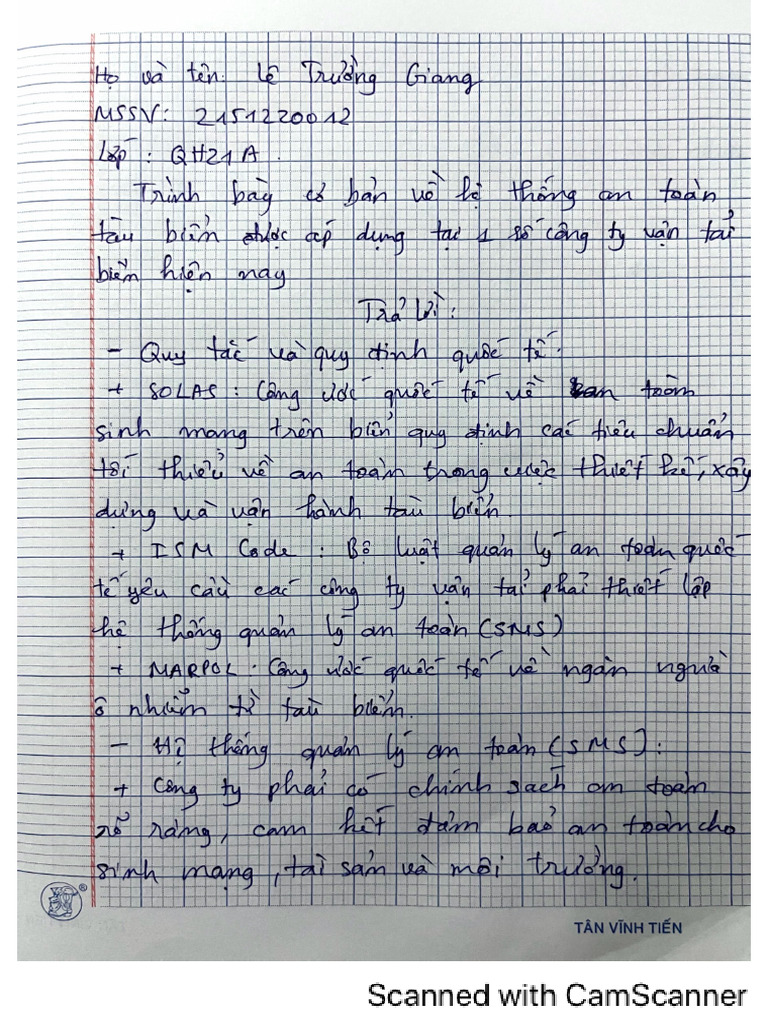 Họ và tên: Lê Trường Giang
MSSV: 2151220012
Lớp: QH21A.
Trình bày cơ bản về hệ thống an toàn
tàu biển được áp dụng tại 1 số công ty vận tải
biển hiện nay
Trả lời:
- Quy tắc và quy định quốc tế.
+ SOLAS: Công ước quốc tế về an toàn
sinh mạng trên biển quy định các tiêu chuẩn
tối thiểu về an toàn trong việc thiết kế, xây
dựng và vận hành tàu biển.
+ ISM Code: Bộ luật quản lý an toàn quốc
tế yêu cầu các công ty vận tải phải thiết lập
hệ thống quản lý an toàn (SMS)
+ MARPOL: Công ước quốc tế về ngăn ngừa
ô nhiễm từ tàu biển.
- Hệ thống quản lý an toàn (SMS):
+ Công ty phải có chính sách an toàn
rõ ràng, cam kết đảm bảo an toàn cho
sinh mạng, tài sản và môi trường.
®
TÂN VĨNH TIẾN
Scanned with CamScanner